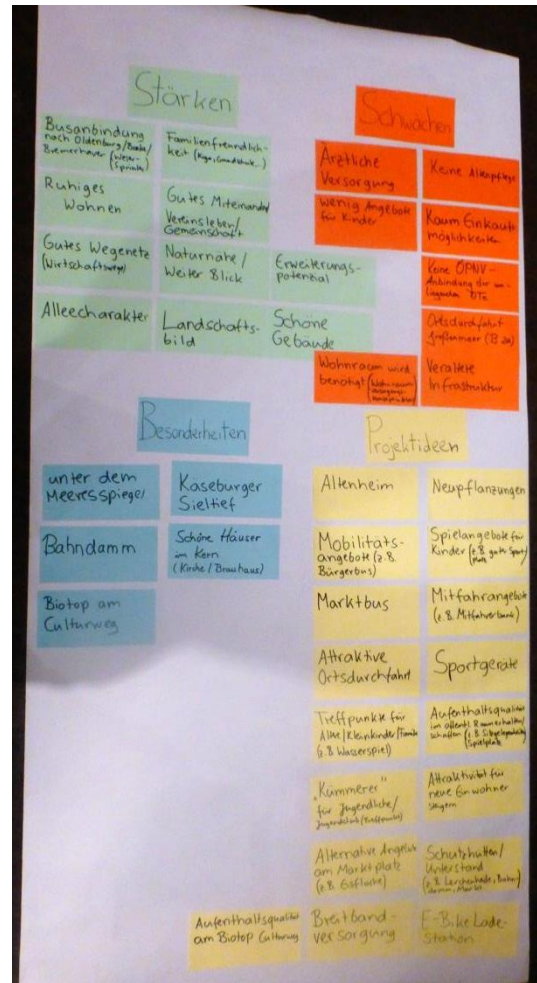 Stärken
Busanbindung
nach Oldenburg/Brake/
Bremerhaven (Weser-
Sprinter)
Familienfreundlich-
keit (Kiga, Grundschule...)
Ruhiges
Wohnen
Gutes Miteinander/
Vereinsleben/
Gemeinschaft
Gutes Wegenetz
(Wirtschaftswege)
Naturnähe/
Weiter Blick
Erweiterungs-
potenzial
Alleecharakter
Landschafts-
bild
Schöne
Gebäude
Schwächen
Ärztliche
Versorgung
Keine Altenpflege
wenig Angebote
für Kinder
Kaum Einkaufs
möglichkeiten
Keine ÖPNV-
Anbindung der um-
liegenden OTe
Ortsdurchfahrt
Großenmeer
Wohnraum wird
benötigt
Veraltete
Infrastruktur
Besonderheiten
unter dem
Meeresspiegel
Käseburger
Sieltief
Bahndamm
Schöne Häuser
im Kern
(Kirche/Brauhaus)
Biotop am
Culturweg
Projektideen
Altenheim
Neupflanzungen
Mobilitäts-
angebote (z.B.
Bürgerbus)
Spielangebote für
Kinder (z.B. guter Sport
platz)
Marktbus
Mitfahrangebote
(z.B. Mitfahrerbank)
Attraktive
Ortsdurchfahrt
Sportgeräte
Treffpunkte für
Alte/Kleinkinder/Familie
(z.B. Wasserspiel)
Aufenthaltsqualität
im öffentl. Raum erhalten/
schaffen (z.B.
Spielplatz
„Kümmerer"
für Jugendliche/
Attraktivität für
neue Einwohner
steigern
Alternative Angebote
am Marktplatz
(z.B. Eisfläche)
Schutzhütten/
Unterstand
(z.B. Lerchenheide, Bahn-
damm, Markt)
Aufenthaltsqualität
am Biotop Culturweg
Breitband-
versorgung
E-Bike Lade-
Station